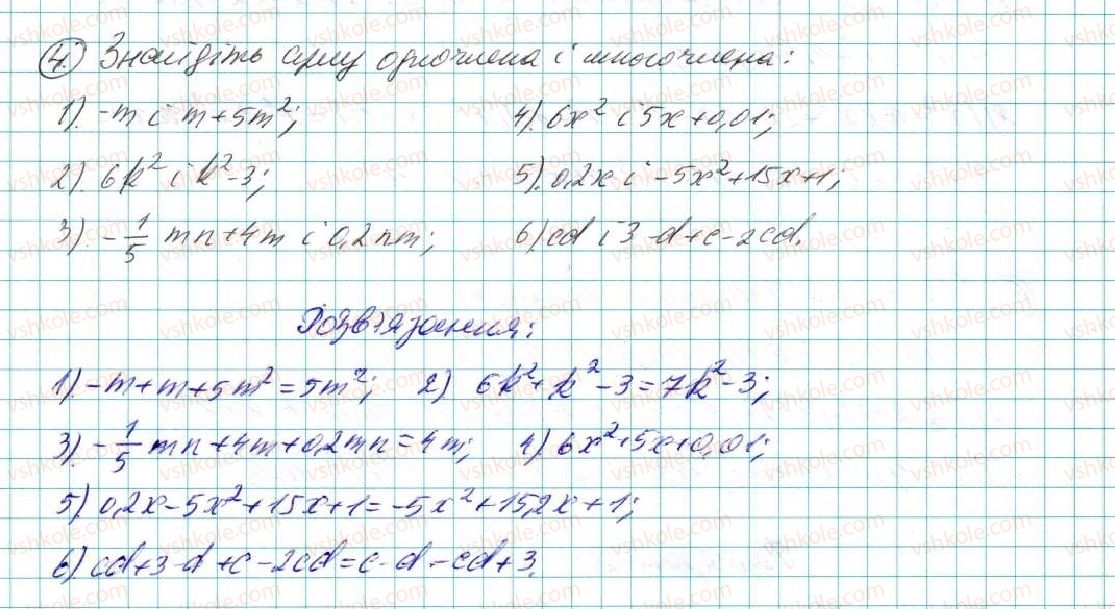 4. Знайдіть суму одночлена і многочлена:
1). -m і m+5m²; 4). 6x² і 5x+0,01;
2). 6k² і k²-3; 5). 0,2x і -5x²+15x+1;
3). -1/5 mn+4m і 0,2nm; 6) cd і 3-d+c-2cd.
Розв'язання:
1). -m+m+5m²=5m²; 2) 6k²+k²-3=7k²-3;
3). -1/5 mn+4m+0,2mn=4m; 4) 6x²+5x+0,01;
5) 0,2x-5x²+15x+1=-5x²+15,2x+1;
6) cd+3-d+c-2cd=c-d-cd+3.
vshkole.com